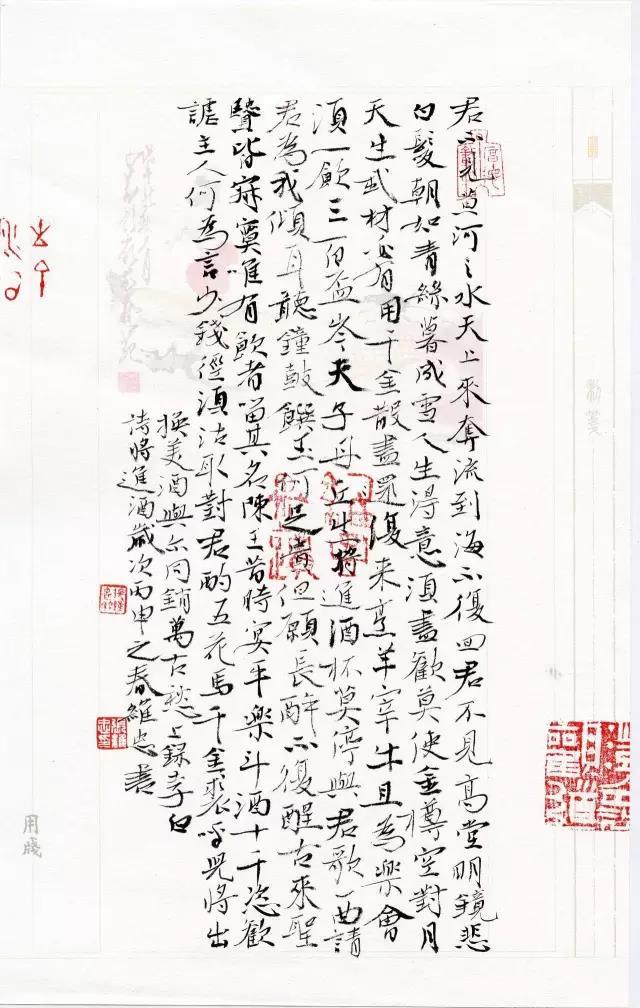 君不見黄河之水天上來奔流到海不復回君不見高堂明鏡悲
白髮朝如青絲暮成雪人生得意須盡歡莫使金樽空對月
天生我材必有用千金散盡還復来烹羊宰牛且為樂會
須一飲三百盃岑夫子丹丘生將進酒杯莫停與君歌一曲請
君為我傾耳聽鐘鼓饌玉何足貴但願長醉不復醒古來聖
賢皆寂寞唯有飲者留其名陳王昔時宴平樂斗酒十千恣歡
謔主人何為言少錢徑須沽取對君酌五花馬千金裘呼兒將出
換美酒與尔同銷萬古愁上錄李白
詩將進酒歲次丙申之春維忠書
用牋